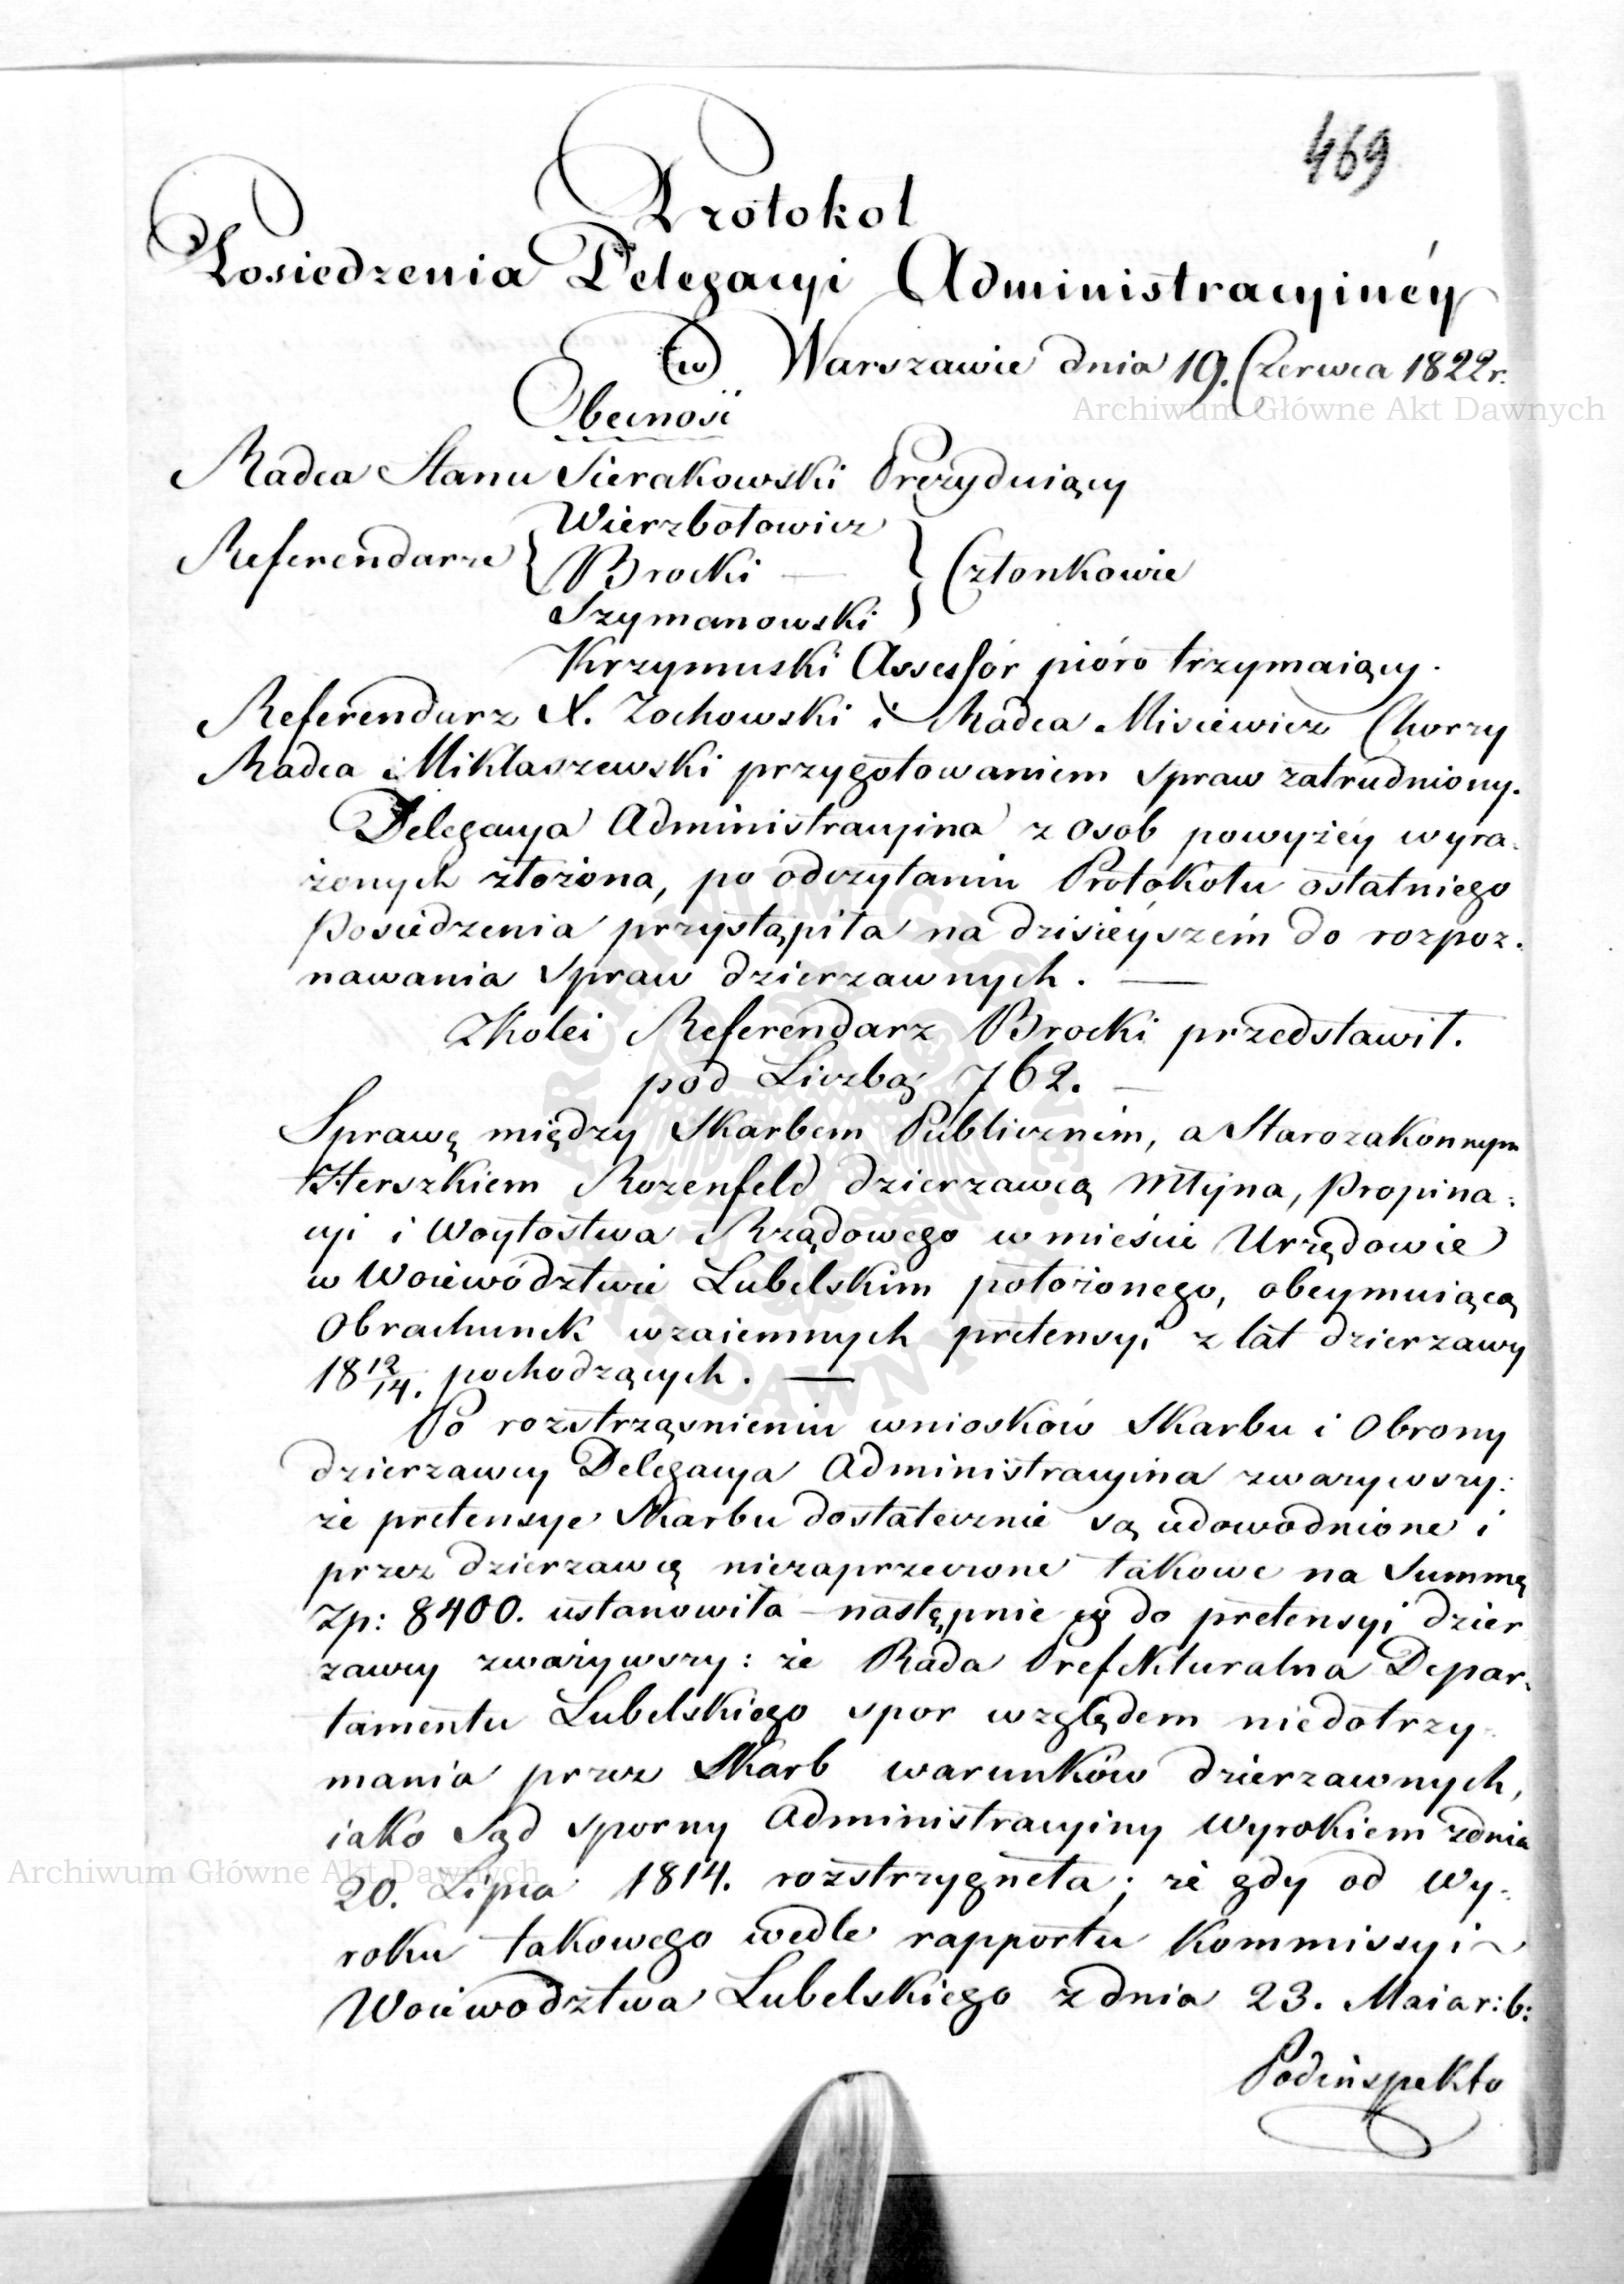 469
Protokol
Posiedzenia Delegacyi Administracyinéy
w Warszawie dnia 19. Czerwca 1822 r.
Archiwum Główne Akt Dawnych
Obecność
Radca Stanu Sierakowski Prezyduiący
Wierzbołowicz
Referendarze { Brocki — } Członkowie
Szymanowski
Krzymuski Assessór pióro trzymaiący.
Referendarz X. Zochowski i Radca Misiewicz Chorzy
Radca Miklaszewski przygotowaniem spraw zatrudniony.
Delegacya Administracyina z osob powyżéy wyra-
żonych złożona, po odczytaniu Protokołu ostatniego
Posiedzenia przystąpiła na dzisieyszém do rozpoz-
nawania spraw dzierzawnych. —
Zkolei Referendarz Brocki przedstawił.
pod Liczbą 762. —
Sprawę między Skarbem Publicznim, a Starozakonnym
Herszkiem Rozenfeld dzierzawcą Młyna, Propina-
cyi i Woytostwa Rządowego w mieście Urzędowie
w Woiewództwie Lubelskim położonego, obeymuiącą
Obrachunek wzaiemnych pretensyi z lat dzierzawy
18 12/14. pochodzących. —
Po roztrząśnieniu wniosków Skarbu i Obrony
dzierzawcy Delegacya Administracyina zwazywszy:
że pretensye Skarbu dostatecznie są udowodnione i
przez dzierzawcę niezaprzeczone takowe na Summę
Zp: 8400. ustanowiła – następnie co do pretensyi dzier
zawcy zważywszy: że Rada Prefekturalna Depar-
tamentu Lubelskiego spor względem niedotrzy-
mania przez Skarb warunków dzierzawnych,
iako Sąd sporny Administracyiny Wyrokiem zdnia
Archiwum Główne Akt Dawnych
20. Lipca 1814. rozstrzygneła; że gdy od Wy-
roku takowego wedle rapportu Kommissyi
Woiewodztwa Lubelskiego z dnia 23. Maia r: b:
Podinspekto
ARCHIWUM GŁÓWNE AKT DAWNYCH